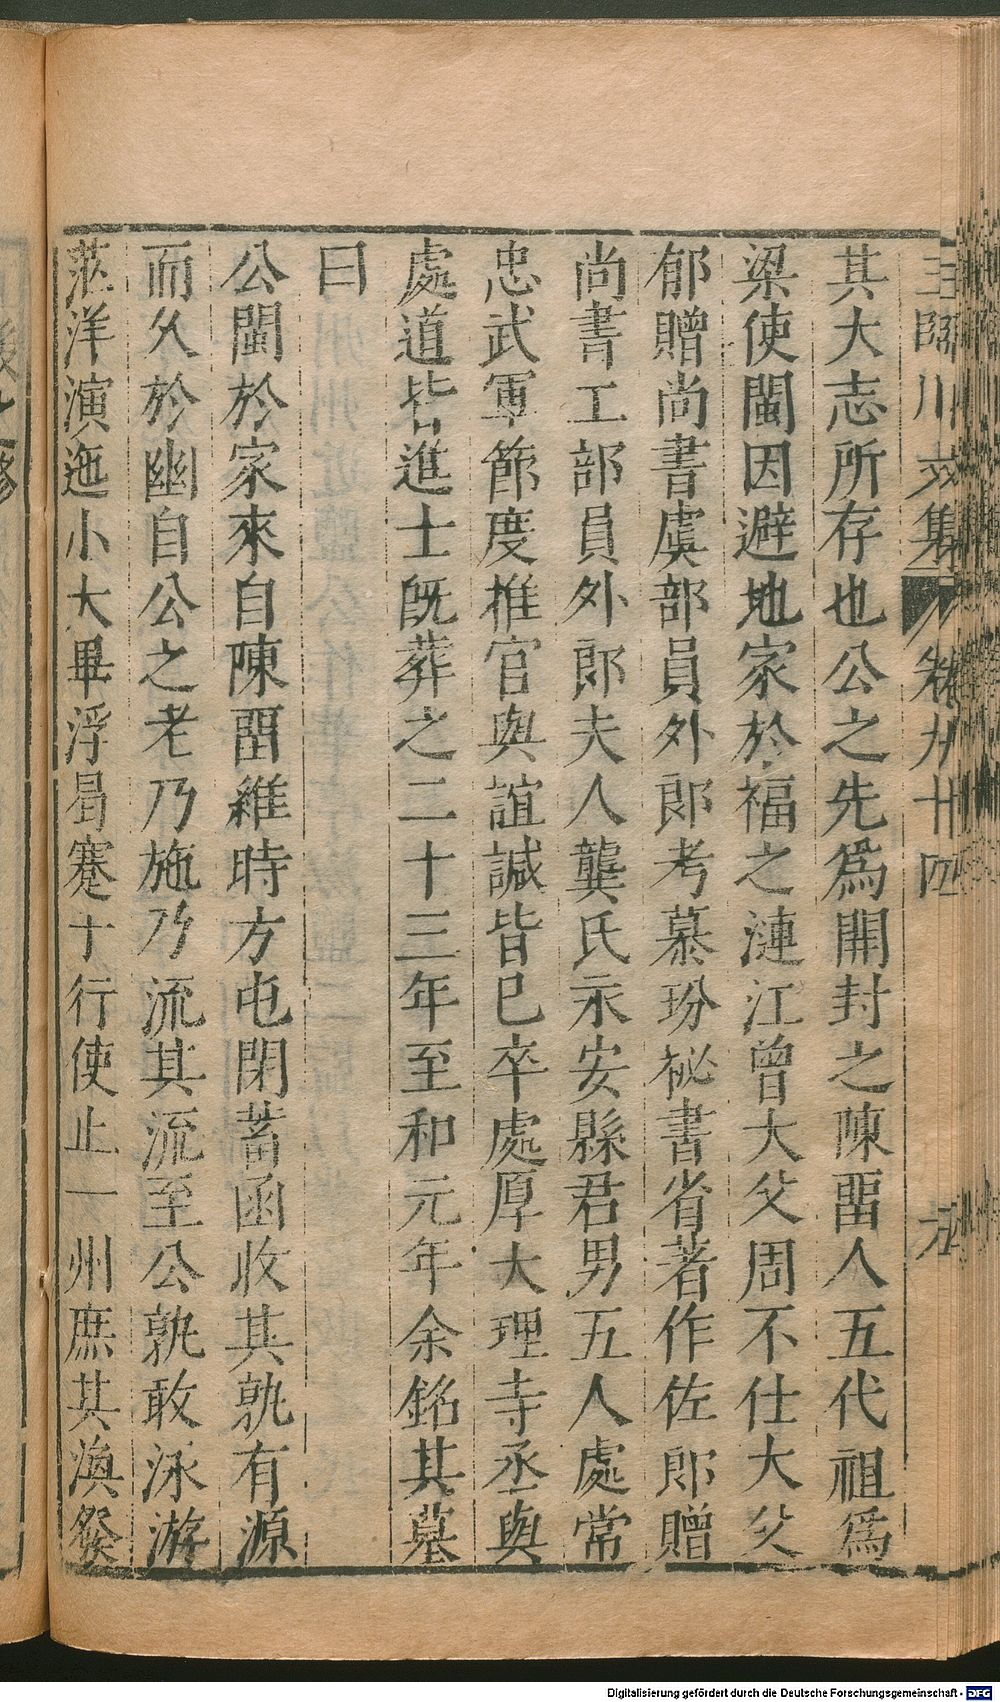 王臨川文集 卷九十四 九
其大志所存也公之先爲開封之陳畱人五代祖爲
梁使閩因避地家於福之漣江曾大父周不仕大父
郁贈尚書虞部員外郎考慕玢祕書省著作佐郎贈
尚書工部員外郎夫人龔氏永安縣君男五人處常
忠武軍節度推官與誼諴皆已卒處厚大理寺丞與
處道皆進士旣葬之二十三年至和元年余銘其墓
曰
公閩於家來自陳畱維時方屯閉蓄函收其孰有源
而久於幽自公之老乃施乃流其流至公孰敢泳游
茫洋演迤小大畢浮曷蹇于行使止一州庶其渙發
Digitalisierung gefördert durch die Deutsche Forschungsgemeinschaft - DFG